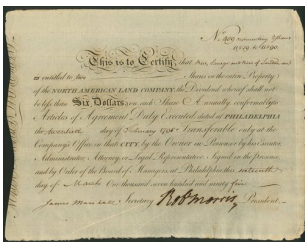 No. 409
This is to Certify, that
is entitled to
Shares in the entire Property
of the NORTH AMERICAN LAND COMPANY; the Dividend whereof shall not
be less than Six Dollars on each Share Annually, conformably to
Articles of Agreement Duly Executed, dated at PHILADELPHIA
the twentieth day of February 1795. Transferable only at the
Company's Office in that CITY, by the Owner in Person or by his Executor
Administrator Attorney or Legal Representative. Signed in the presence
and by Order of the Board of Managers, at Philadelphia, this
day of March One thousand seven hundred and ninety five
James Marshall Secretary Robt Morris President